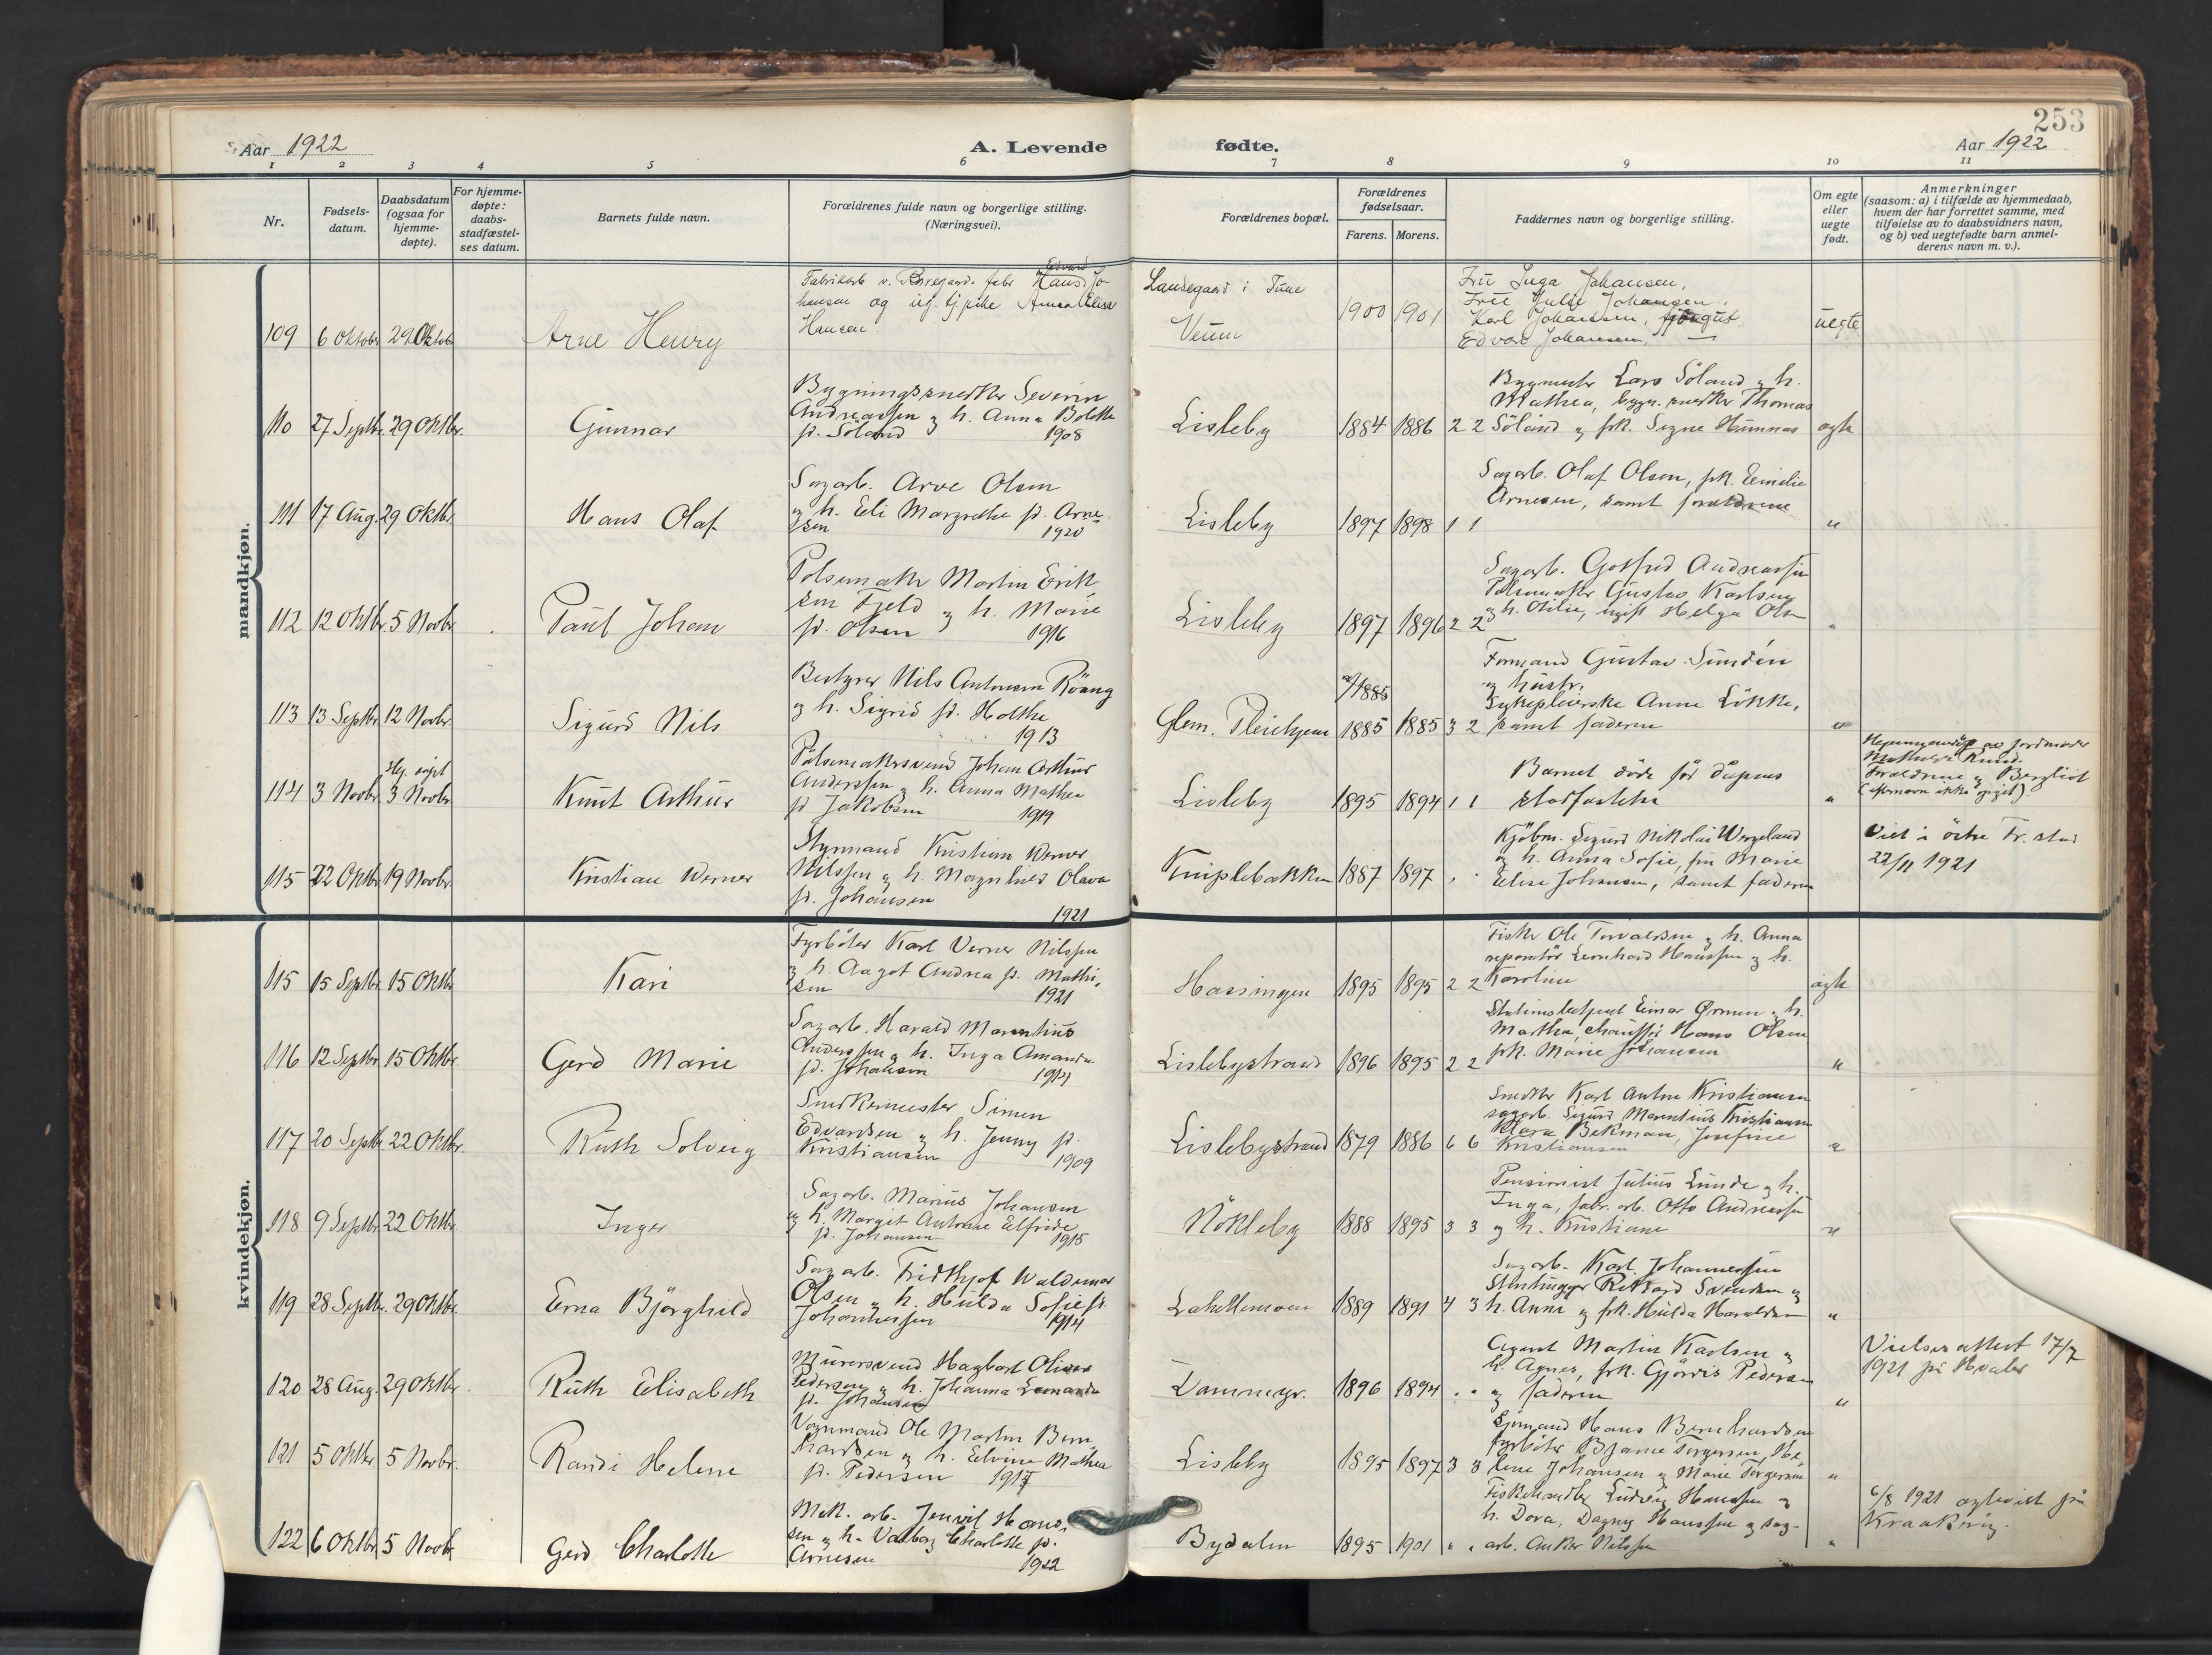 253
Aar 1922
A. Levende
fødte.
Aar 1922
1 2 3 4 5 6 7 8 9 10 11
Nr.
Fødsels-
datum.
Daabsdatum
(ogsaa for
hjemme-
døpte).
For hjemme-
døpte:
daabs-
stadfæstel-
ses datum.
Barnets fulde navn.
Forældrenes fulde navn og borgerlige stilling.
(Næringsvei).
Forældrenes bopæl.
Forældrenes
fødselsaar.
Farens. Morens.
Faddernes navn og borgerlige stilling.
Om egte
eller
uegte
født.
Anmerkninger
(saasom: a) i tilfælde av hjemmedaab,
hvem der har forrettet samme, med
tilføielse av to daabsvidners navn,
og b) ved uegtefødte barn anmel-
derens navn m. v.).
mandkjøn.
109 6 Oktobr 29 Oktob
Arne Henry
Edvard
Fabrikarb v. fabr Hans Jo-
hansen og ug. tj pike Anna Elise
Hansen
i Tune
Veum
1900 1901
Fru Inga Johansen,
Fru Julie Johansen,
Karl Johansen,
Edvard Johansen,
uegte
110 27 Septbr. 29 Oktbr.
Gunnar
Bygningssnedker Severin
Andreassen og h. Anna Bolette
f. Söland
1908
Lisleby
1884 1886 2 2
Bygmester Lars Söland og h.
Mathea, bygn. snedker Thomas
Söland og frk. Signe Humnas
egte
111 17 Aug. 29 Oktbr.
Hans Olaf
Sagarb. Arve Olsen
og h. Eli Margrethe f. Arne-
sen
1920
Lisleby
1897 1898 1 1
Sagarb. Olaf Olsen, frk. Emilie
Arnesen, samt forældrene
"
112 12 Oktbr 5 Novbr
Paul Johan
Pölsemaker Martin Erik
sen Fjeld og h. Marie
f. Olsen
1916
Lisleby
1897 1896 2 2
Sagarb. Gotfred Andreassen
Pölsemaker Gustav Karlsen
og h. Otilie, ugift Helga Olsen
"
113 13 Septbr 12 Novbr.
Sigurd Nils
Bestyrer Nils Antonsen Röang
og h. Sigrid f. Holthe
1913
Glem. Pleiehjem
1885
1885 1885 3 2
Formand Gustav Sundén
og hustr.
Sykepleierske Anne Lökke,
samt faderen
"
114 3 Novbr
Hj. døpt
3 Novbr
Knut Arthur
Pölsemakersvend Johan Arthur
Anderssen og h. Anna Mathea
f. Jakobsen
1919
Lisleby
1895 1894 1 1
Barnet döde för dåpens
stadfæstelse
"
Hjemmedöpt av jordmoder
Mathilde Rund.
Forældrene og Bergliot
(efternavn ikke opgit)
115 22 Oktbr 19 Novbr.
Kristian Werner
Styrmand Kristian Werner
Nilssen og h. Magnhild Olava
f. Johansen
1921
Kniplebakken
1887 1897
Kjöbm. Sigurd Nikolai Wergeland
og h. Anna Sofie, fru Marie
Elise Johansen, samt faderen
Viet i östre Fr. stad
22/11 1921
kvindekjøn.
115 15 Septbr. 15 Oktbr
Kari
Fyrböter Karl Verner Nilssen
og h. Aagot Andrea f. Mathi-
sen
1921
Hassingen
1895 1895 2 2
Fisker Ole Torvaldsen og h. Anna
reparatör Leonhard Hanssen og h.
Karoline
egte
116 12 Septbr 15 Oktbr.
Gerd Marie
Sagarb. Harald Marentius
Anderssen og h. Inga Amanda
f. Johansen
1914
Lislebystrand
1896 1895 2 2
Einar Ørmen og h.
Martha, chauffør Hans Olsen
frk. Marie Johansen
"
117 20 Septbr. 22 Oktbr.
Ruth Solveig
Snedkermester Simen
Edvardsen og h. Jenny f.
Kristiansen
1909
Lislebystrand
1879 1886 6 6
Snedker Karl Anton Kristiansen
sagarb. Sigurd Marentius Kristiansen
Klara Bekman, Josefine
Kristiansen
"
118 9 Septbr 22 Oktbr.
Inger
Sagarb. Marius Johansen
og h. Margit Antonie Elfride
f. Johansen
1915
Nökleby
1888 1895 3 3
Pensionist Julius Lunde og h.
Inga, fabr. arb. Otto Andreassen
og h. Kristiane
"
119 28 Septbr. 29 Oktbr.
Erna Björghild
Sagarb. Fridthjof Waldemar
Olsen og h. Hulda Sofie f.
Johannessen
1914
Lahellemoen
1889 1891 4 3
Sagarb. Karl Johannessen
Stenhugger Rikard Svendsen og
h. Anna og frk. Hulda Haraldsen
"
120 28 Aug. 29 Oktbr.
Ruth Elisabeth
Murersvend Hagbart Oliver
Pedersen og h. Johanna Leonarda
f. Johansen
Dammyr.
1896 1894
Agent Martin Karlsen og
h. Agnes, frk. Gjördis Pedersen
og faderen
"
Vielsesattest 17/7
1921 på Hvaler
121 5 Oktbr 5 Novbr.
Randi Helene
Vognmand Ole Martin Bern
hardsen og h. Edvine Mathea
f. Pedersen
1917
Lisleby
1895 1897 3 3
Sjömand Hans Bernhardsen
fyrböter Bjarne Torgersen, He-
lene Johansen og Marie Torgersen
"
122 6 Oktbr. 5 Novbr
Gerd Charlotte
Mek. arb. Jenvil Hans-
sen og h. Valborg Charlotte f.
Arnesen
1922
Bydalen
1895 1901 " "
Fiskehandler Ludvig Hanssen og
h. Dora, Dagny Hanssen og sag-
arb. Anker Nilssen
"
6/8 1921 egteviet på
Kraakeröy.